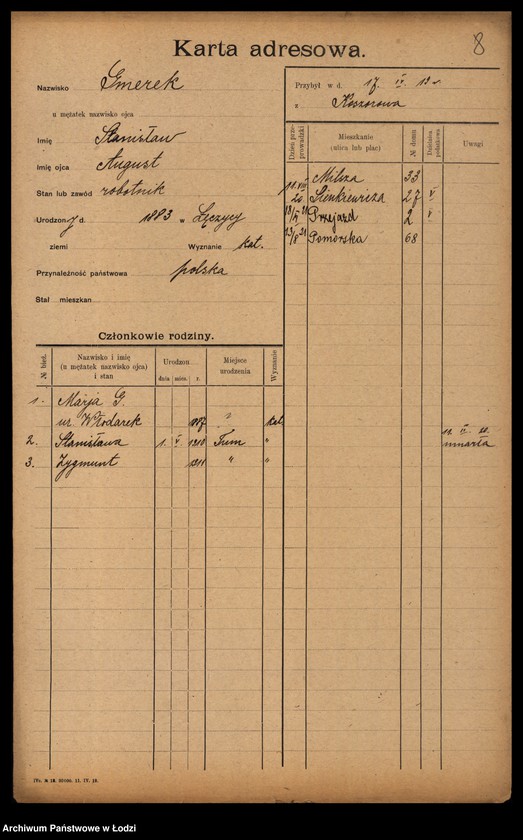 8
Karta adresowa.
Nazwisko Gmerek
u mężatek nazwisko ojca
Imię Stanisław
Imię ojca August
Stan lub zawód robotnik
Urodzony d. 1883 w Łęczycy
ziemi Wyznanie kat.
Przynależność państwowa polska
Stał mieszkan
Przybył w d. 17. IV.
z Koszorowa
Dzień przeprowadzki
Mieszkanie (ulica lub plac)
№ domu
Dzielnica podatkowa
Uwagi
Milsza 33
Sienkiewicza 27 V
Przejazd 2 V
23/8 21 Pomorska 68
Członkowie rodziny.
№ bież.
Nazwisko i imię (u mężatek nazwisko ojca) i stan
Urodzon
dnia mies. r.
Miejsce urodzenia
Wyznanie
1. Marja G.
ur. Włodarek ? kat.
2. Stanisława 1. V 1910 Tum " umarła
3. Zygmunt 1911 " "
Archiwum Państwowe w Łodzi